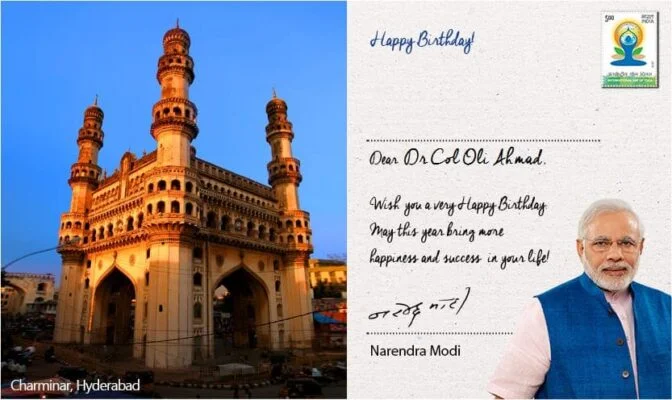 Happy Birthday!
भारत
500 INDIA
INTERNATIONAL DAY OF YOGA
Dear Dr Col Oli Ahmad,
Wish you a very Happy Birthday.
May this year bring more
happiness and success in your life!
नरेन्द्र मोदी
Narendra Modi
Charminar, Hyderabad